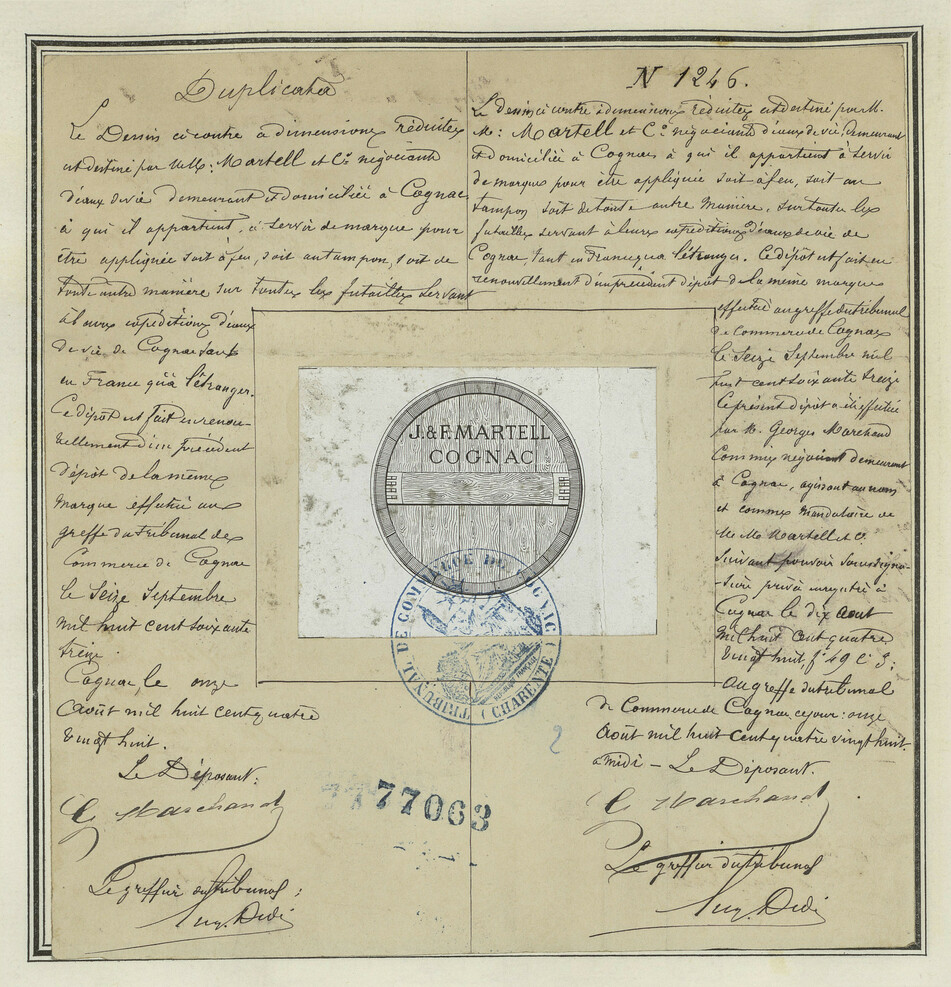 Duplicata
Le Dessin ci contre à dimensions réduites
est destiné par MM: Martell et Cie négociants
d'eaux de vie demeurant et domiciliés à Cognac
à qui il appartient, à servir de marque pour
être appliquée soit à feu, soit au tampon, soit de
toute autre manière sur toutes les futailles servant
à leurs expéditions d'eaux
de vie de Cognac tant
en France qu'à l'étranger.
Ce dépôt est fait en renou-
vellement d'un précédent
dépôt de la même
marque effectué au
greffe du tribunal de
Commerce de Cognac
le Seize Septembre
mil huit cent soixante
treize.
Cognac, le onze
Août mil huit cent quatre
vingt huit.
Le Déposant:
G Marchand
Le greffier du tribunal:
Aug. Didi
N 1246.
Le dessin ci contre à dimensions réduites est destiné par M.
M: Martell et Cie négociants d'eaux de vie, demeurant
et domiciliés à Cognac à qui il appartient à servir
de marque pour être appliquée soit à feu, soit au
tampon soit de toute autre manière, sur toutes les
futailles servant à leurs expéditions d'eaux de vie de
Cognac, tant en France qu'à l'étranger. Ce dépôt est fait en
renouvellement d'un précédent dépôt de la même marque
effectué au greffe du tribunal
de Commerce de Cognac
le Seize Septembre mil
huit cent soixante treize
Le présent dépôt a été effectué
par M. Georges Marchand
Commis négociant demeurant
à Cognac, agissant au nom
et comme mandataire de
M M Martell et Cie
suivant pouvoir sous signa-
-ture privée enregistré à
Cognac le dix août
mil huit cent quatre
vingt huit, f° 49 C 3;
Au greffe du tribunal
de Commerce de Cognac ce jour: onze
Août mil huit cent quatre vingt huit
à midi - Le Déposant.
G Marchand
Le greffier du tribunal
Aug. Didi
J. & F. MARTELL
COGNAC
TRIBUNAL DE COMMERCE DE COGNAC (CHARENTE)
2
77063